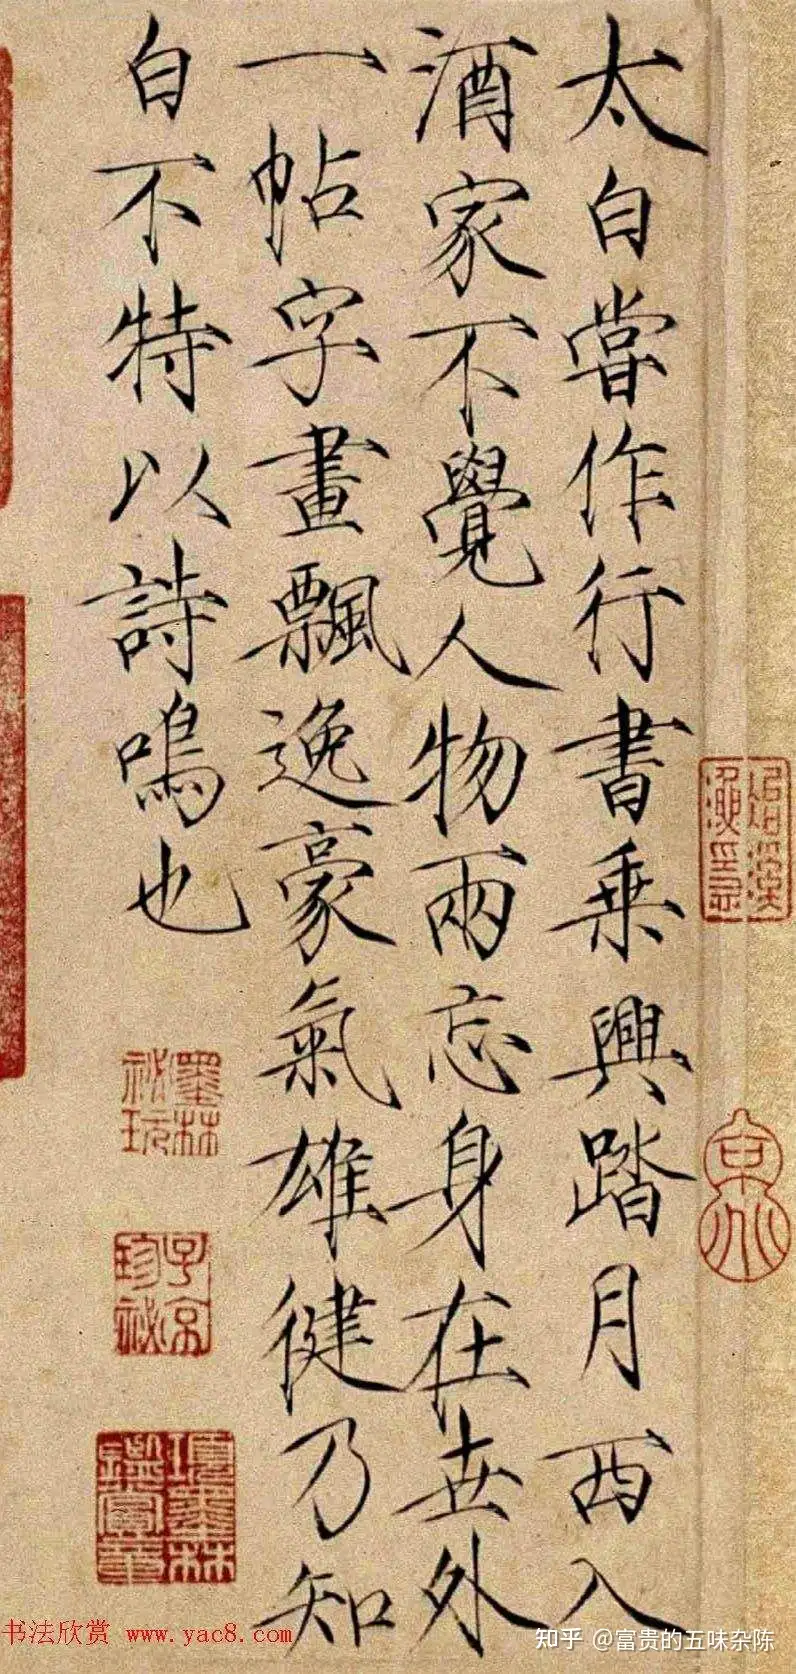 太白嘗作行書乗興踏月西入
酒家不覺人物兩忘身在世外
一帖字畫飄逸豪氣雄健乃知
白不特以詩鳴也
墨林
祕玩
子京
珍祕
項墨林
鑑賞章
书法欣赏 www.yac8.com
知乎 @富贵的五味杂陈